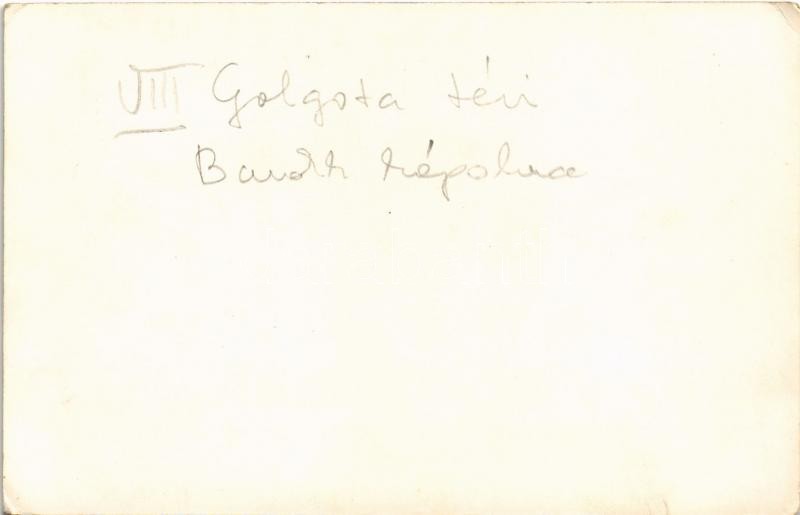 VIII Golgota téri
Barokk kápolna